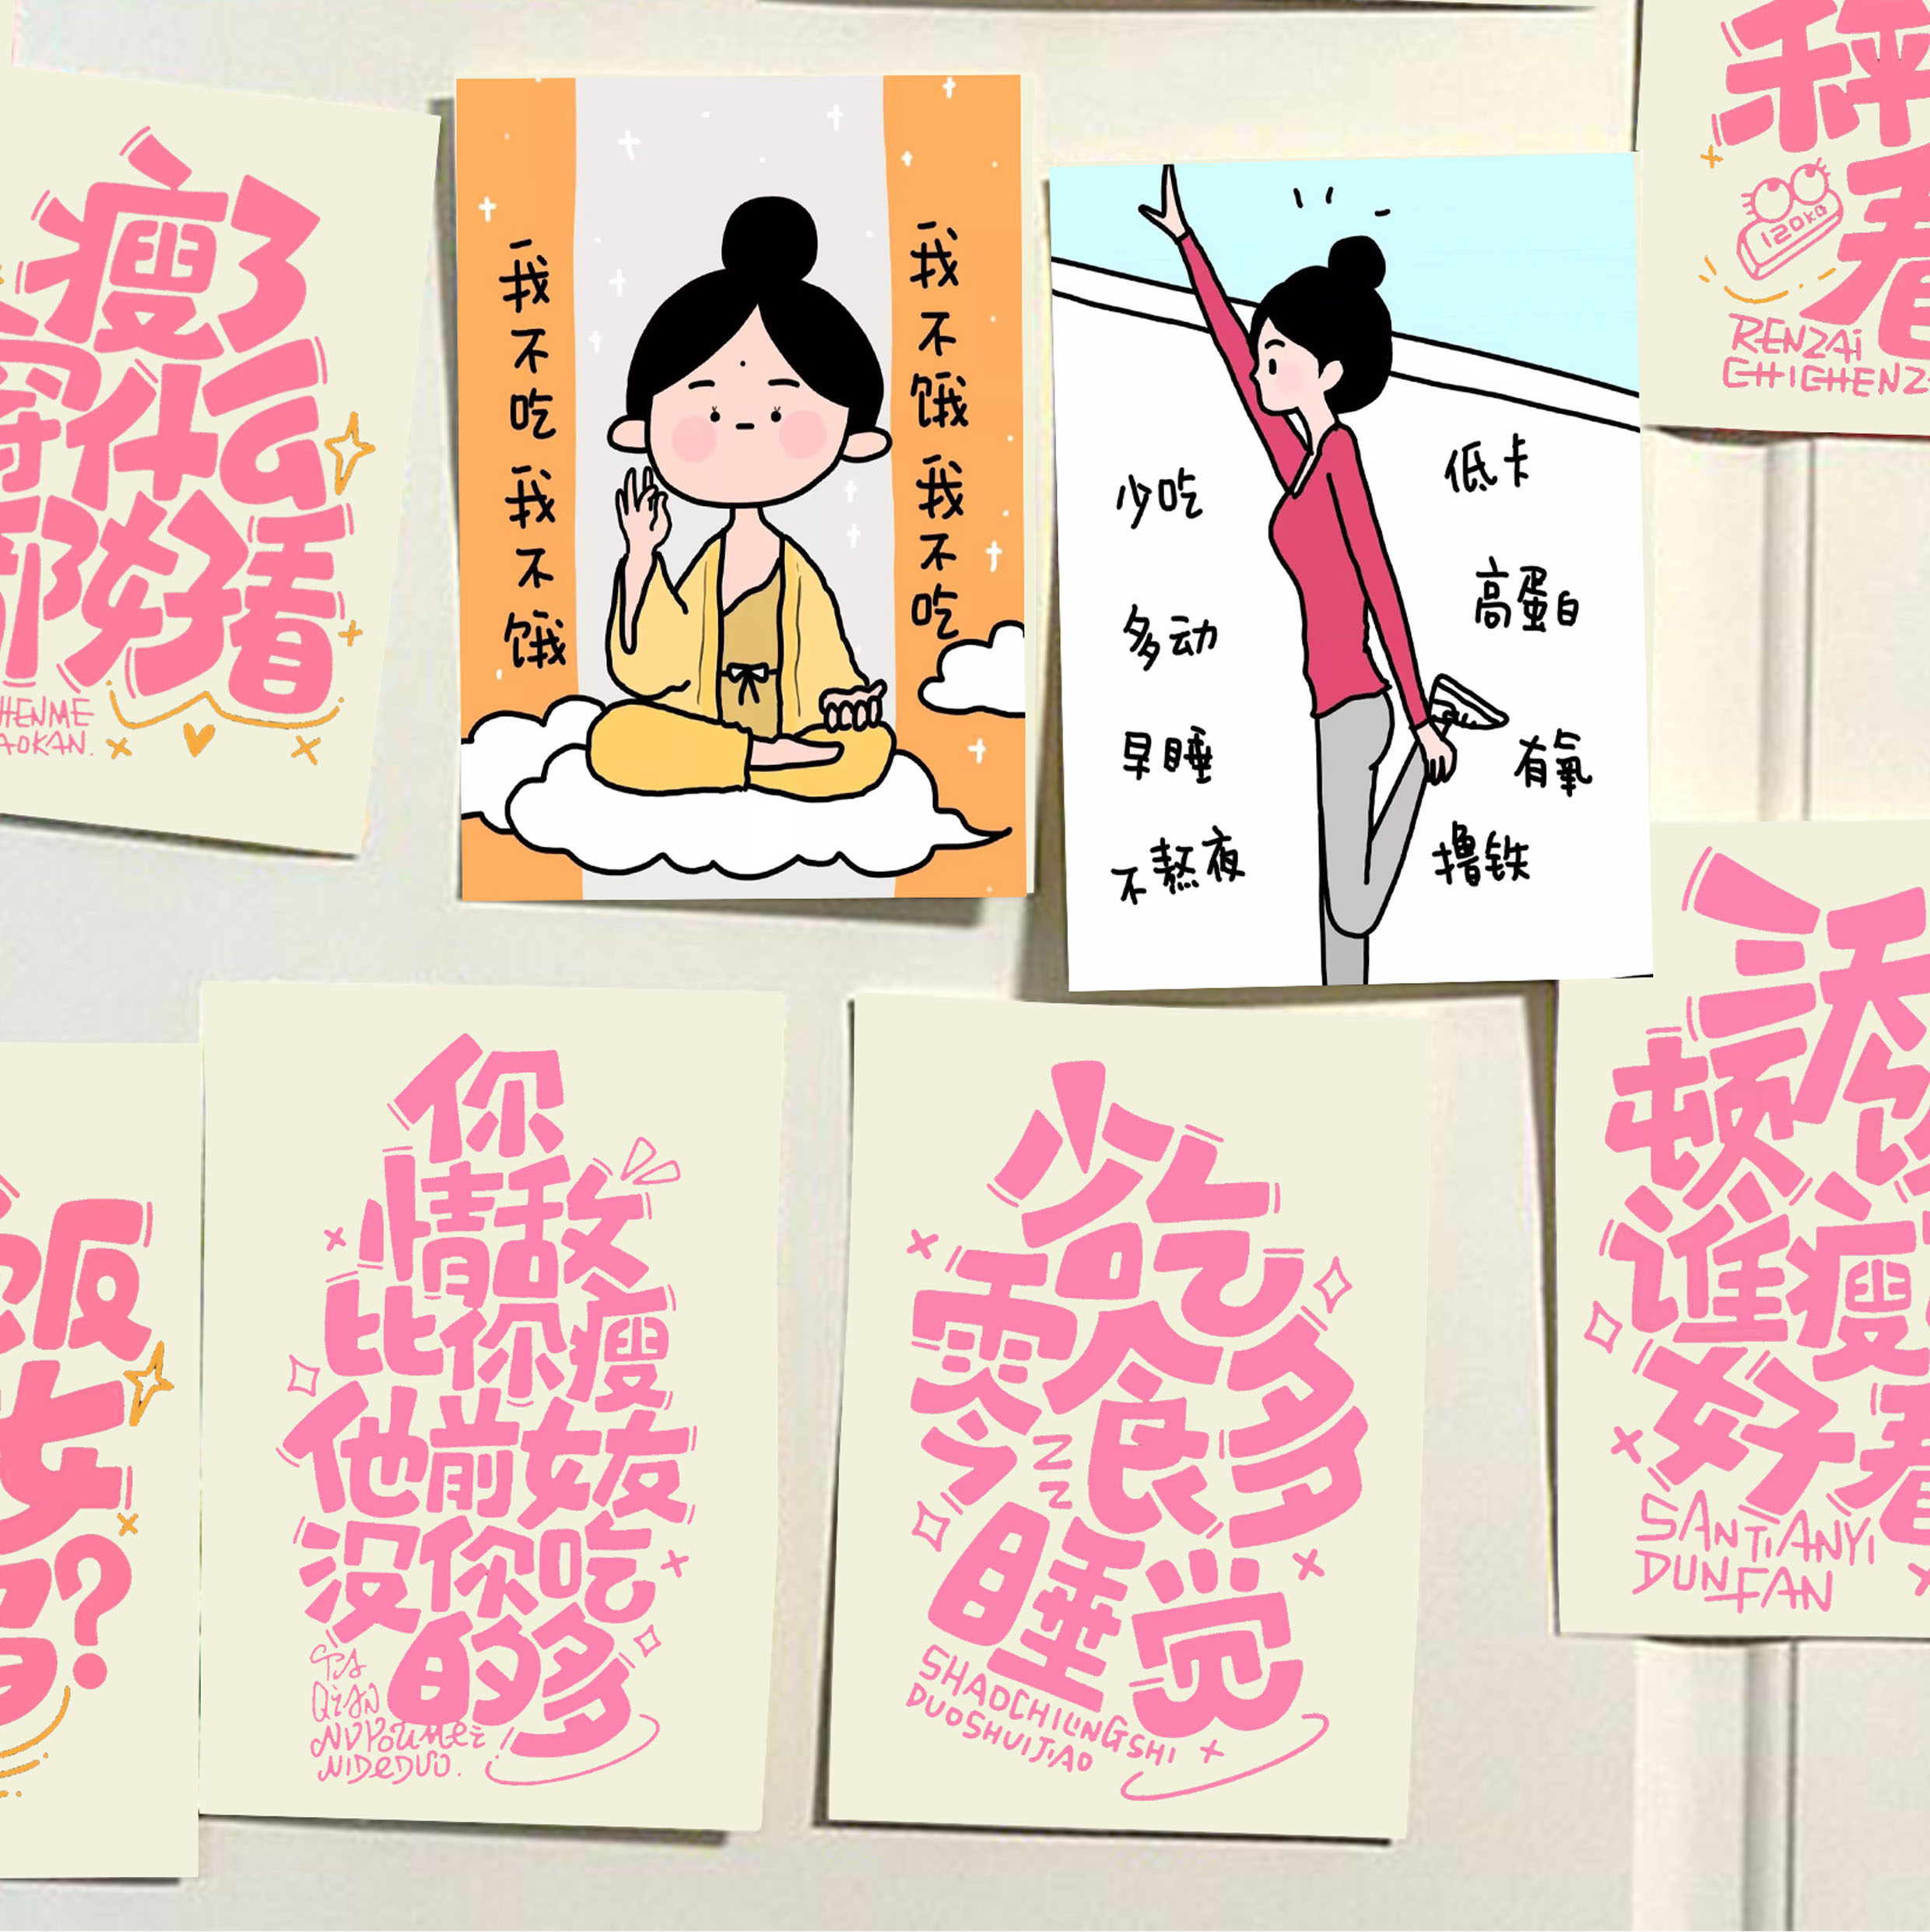 瘦了
穿什么
都好看
HENME
AOKAN.
我不吃我不饿
我不饿我不吃
少吃
多动
早睡
不熬夜
低卡
高蛋白
有氧
撸铁
秤
看
120KG
RENZAI
CHICHENZ
饭
女
?
你
情敌
比你瘦
他前女友
没你吃
的多
TA
QIAN
NVYOUMEI
NIDEDUO.
少吃
零食多
睡觉
ZZZ
SHAOCHILINGSHI
DUOSHUIJIAO
三天
顿饭
谁瘦
好看
SANTIANYI
DUNFAN